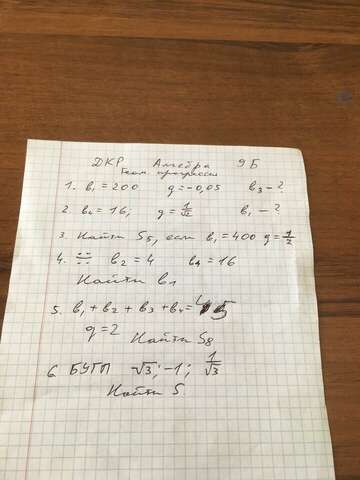 ДКР Алгебра 9Б
Геом. прогрессия
1. в₁ = 200 q = -0,05 в₃ - ?
2. в₄ = 16; q = 1/√2 в₁ - ?
3 Найти S₅, если в₁ = 400 q = 1/2
4. ∺ в₂ = 4 в₄ = 16
Найти в₁
5. в₁ + в₂ + в₃ + в₄ = 45
q = 2 Найти S₈
6. БУГП √3; -1; 1/√3
Найти S